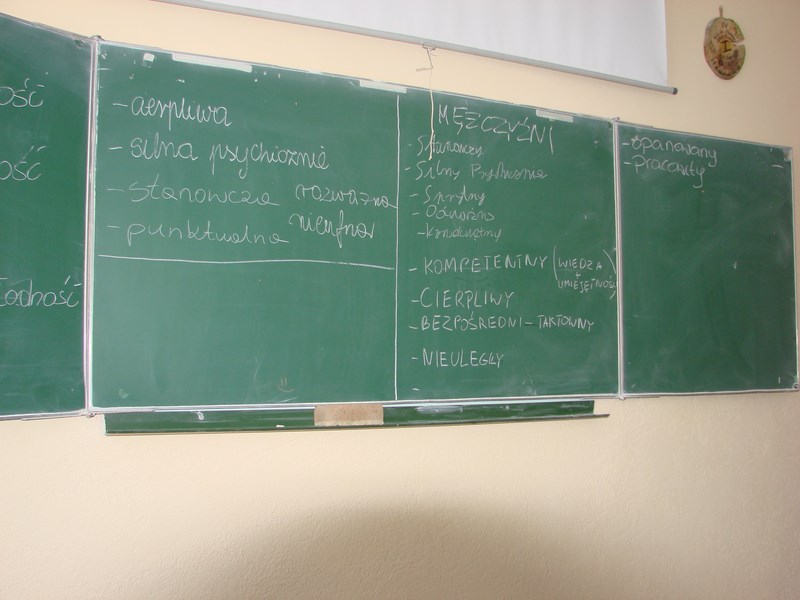 ość
ość
odność
- cierpliwa
- silna psychicznie
- stanowcza rozważna
- punktualna nieufna
MĘŻCZYŹNI
- Stanowczy
- Silny Psychicznie
- Sprytny
- Odważna
- Konsekwentny
- KOMPETENTNY (WIEDZA + UMIEJĘTNOŚĆ)
- CIERPLIWY
- BEZPOŚREDNI - TAKTOWNY
- NIEULEGŁY
-
- opanowany
- pracowity